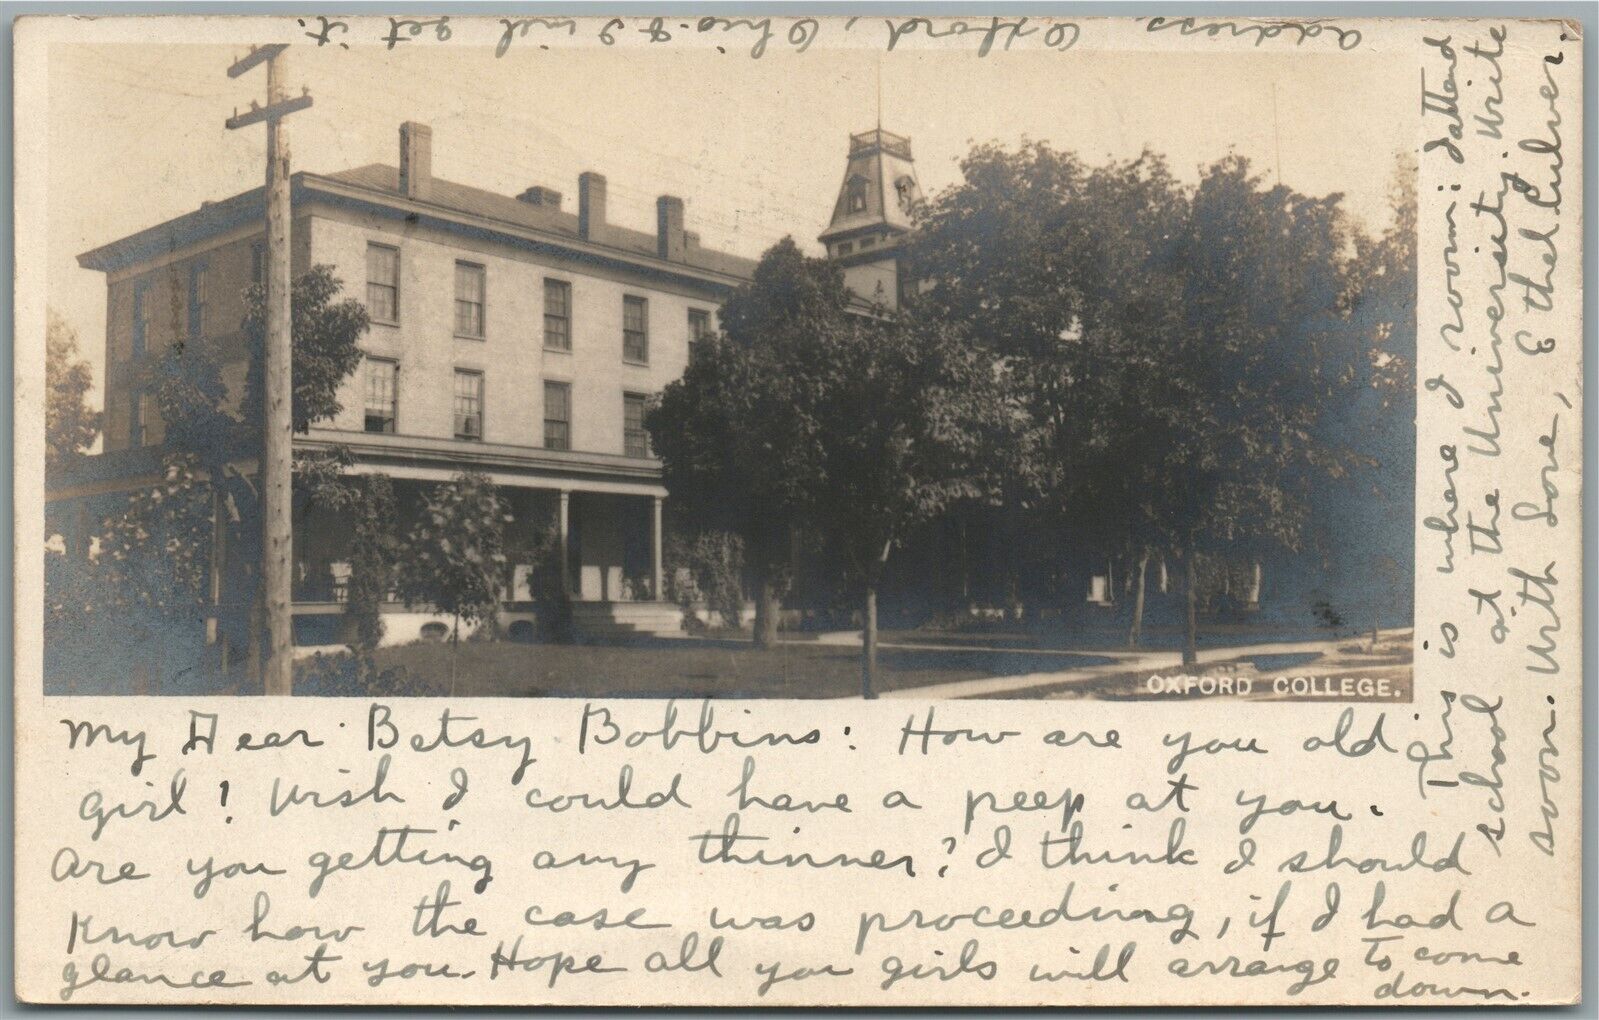 OXFORD COLLEGE.
My Dear Betsy Bobbins: How are you old
girl! Wish I could have a peep at you.
Are you getting any thinner? I think I should
know how the case was proceeding, if I had a
glance at you. Hope all you girls will arrange to come
down.
This is where I room: I attend
school at the University. Write
soon. With Love, Ethel Culver.
address, Oxford, Ohio. & I will get it.